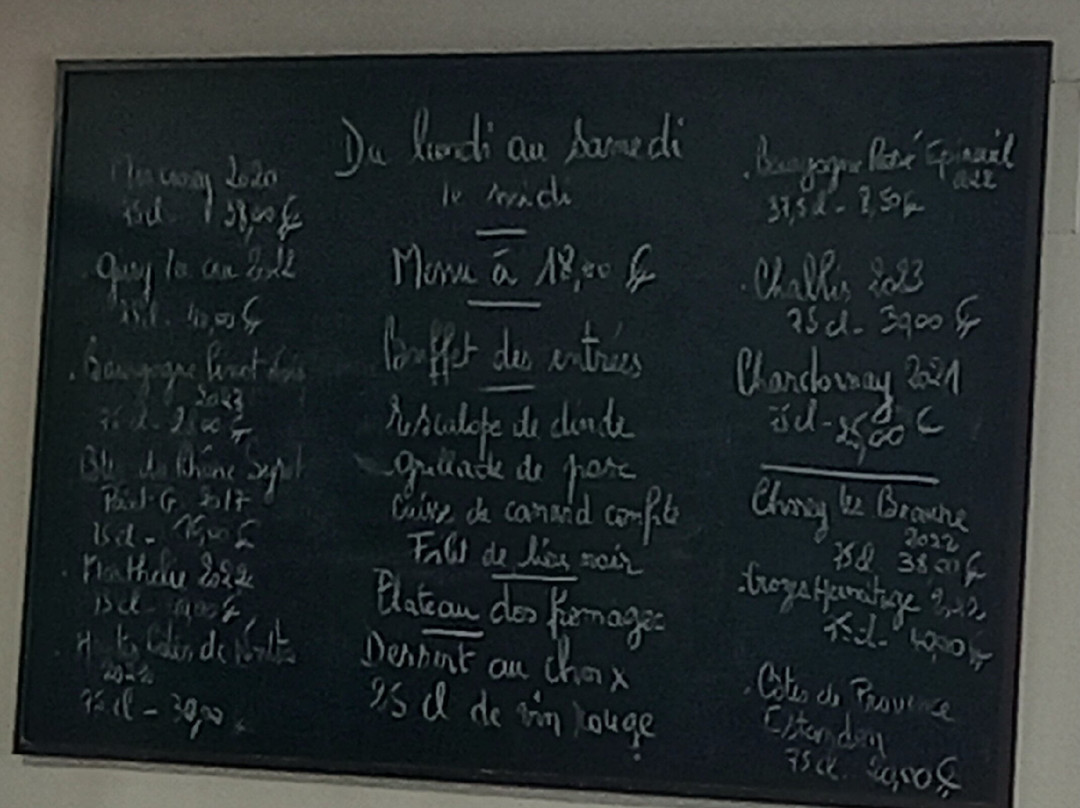 Mercurey 2020
75 cl - 38,00 €
75 cl - 40,00 €
Bourgogne Pinot Noir
2023
75 cl -
Côtes du Rhône
2017
75 cl -
Monthelie 2022
75 cl -
Hautes Côtes de
75 cl - 30,00 €
Du lundi au Samedi
le midi
Menu à 18,00 €
Buffet des entrées
Escalope de dinde
Grillade de porc
Cuisse de canard confite
Filet de lieu noir
Plateau des fromages
Dessert au choix
25 cl de vin rouge
Bourgogne Rosé Epineuil
37,5 cl - 8,50 €
Chablis 2023
75 cl - 30,00 €
Chardonnay 2021
75 cl - 25,00 €
Chorey les Beaune
2022
75 cl 38,00 €
Crozes Hermitage 2022
75 cl - 40,00 €
Côtes de Provence
Estandon
75 cl - 20,00 €